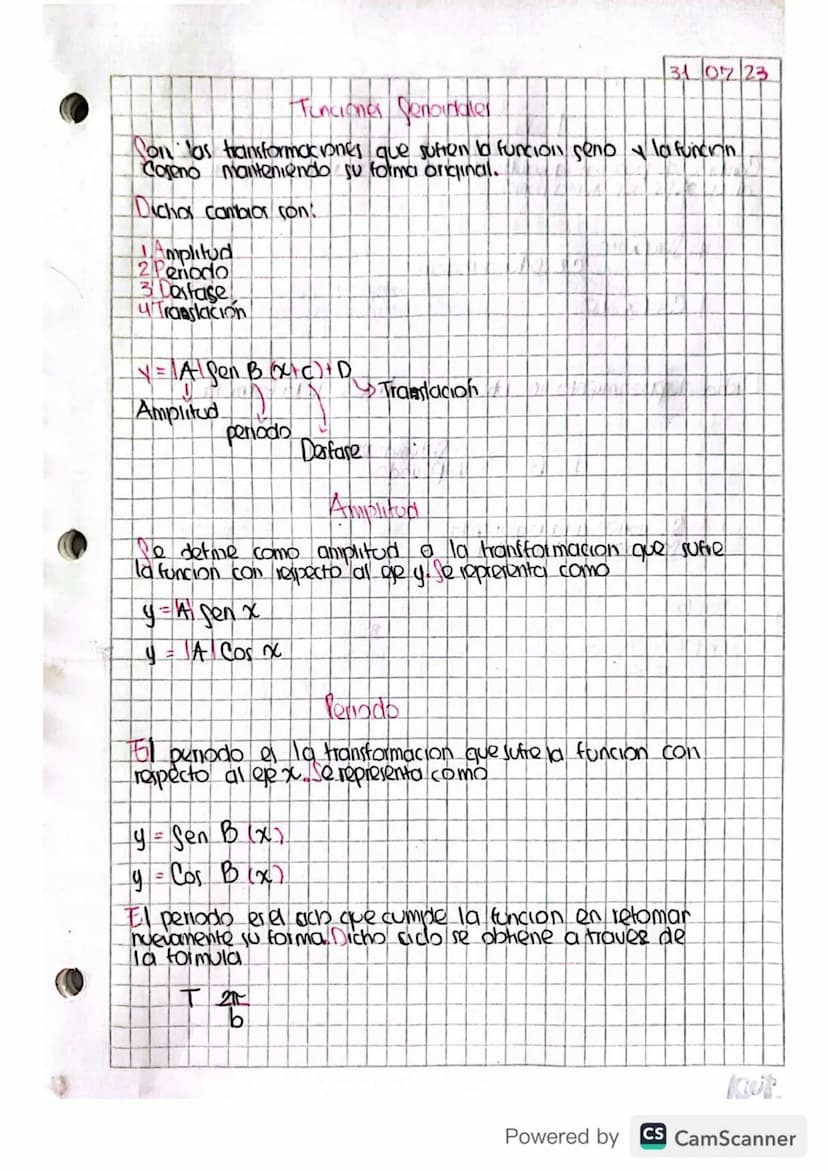 31 07 23
Funciones Senoidales
Son las transformaciones que sufren la función seno y la función
Coseno manteniendo su forma original.
Dichos cambios son:
1 Amplitud
2 Periodo
3 Desfase
4 Translación
y = |A| Sen B (x+c)+D
Translación
Amplitud
periodo
Desfase
Amplitud
Se define como amplitud a la transformacion que sufre
la funcion con respecto al eje y. Se representa como
y = |A| Sen x
y = |A| Cos x
Periodo
El periodo es la transformacion que sufre la funcion con
respecto al eje x. Se representa como
y = Sen B (x)
y = Cos B (x)
El periodo es el ciclo que cumple la funcion en retomar
nuevamente su forma. Dicho ciclo se obtiene a traves de
la formula
T 2π
b
Kiut.
Powered by CS CamScanner